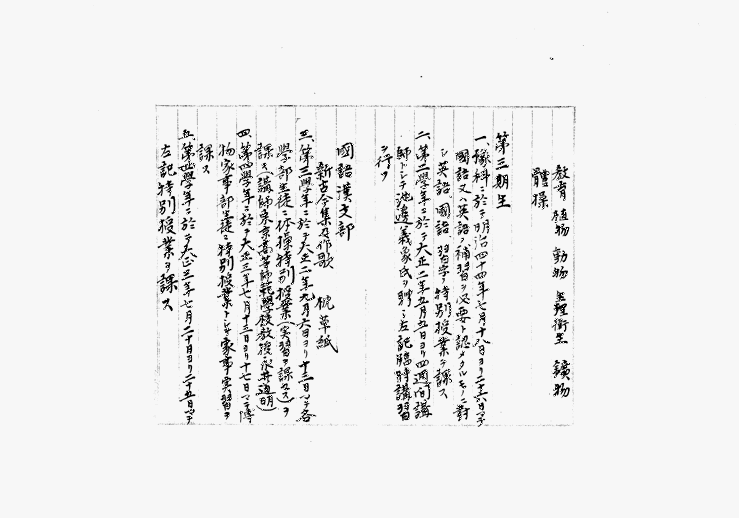 教育 植物 動物 生理衛生 鑛物
體操
第三期生
一、豫科ニ於テ明治四十四年七月十八日ヨリ二十六日マデ
國語又ハ英語ノ補習ヲ必要ト認メタルモノニ對
シ英語、國語、習字ノ特別授業ヲ課ス
二、第二學年ニ於テ大正二年五月五日ヨリ四週間講
師トシテ池邊義象氏ヲ聘シ左記臨時講習
ヲ行フ
國語漢文部
新古今集及作歌 枕草紙
三、第三學年ニ於テ大正二年九月六日ヨリ十三日マデ各
學部生徒ニ体操特別授業(実習ヲ課ス)ヲ
課ス(講師東京高等師範學校教授永井道明)
四、第四學年ニ於テ大正三年七月十三日ヨリ十七日マデ博
物家事部生徒ニ特別授業トシテ家事実習ヲ
課ス
五、第四學年ニ於テ大正三年七月二十日ヨリ二十五日マデ
左記特別授業ヲ課ス